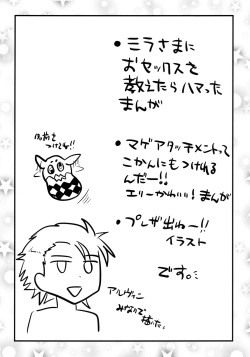 ・ミラさまに
おセックスを
教えたらハマった
まんが
・マゲアタッチメントって
こかんにもつけれる
んだー!!
エリーかわいい!まんが
・プレザ出ねー!!
イラスト
です。
アルヴィン
みなりで
描いた。